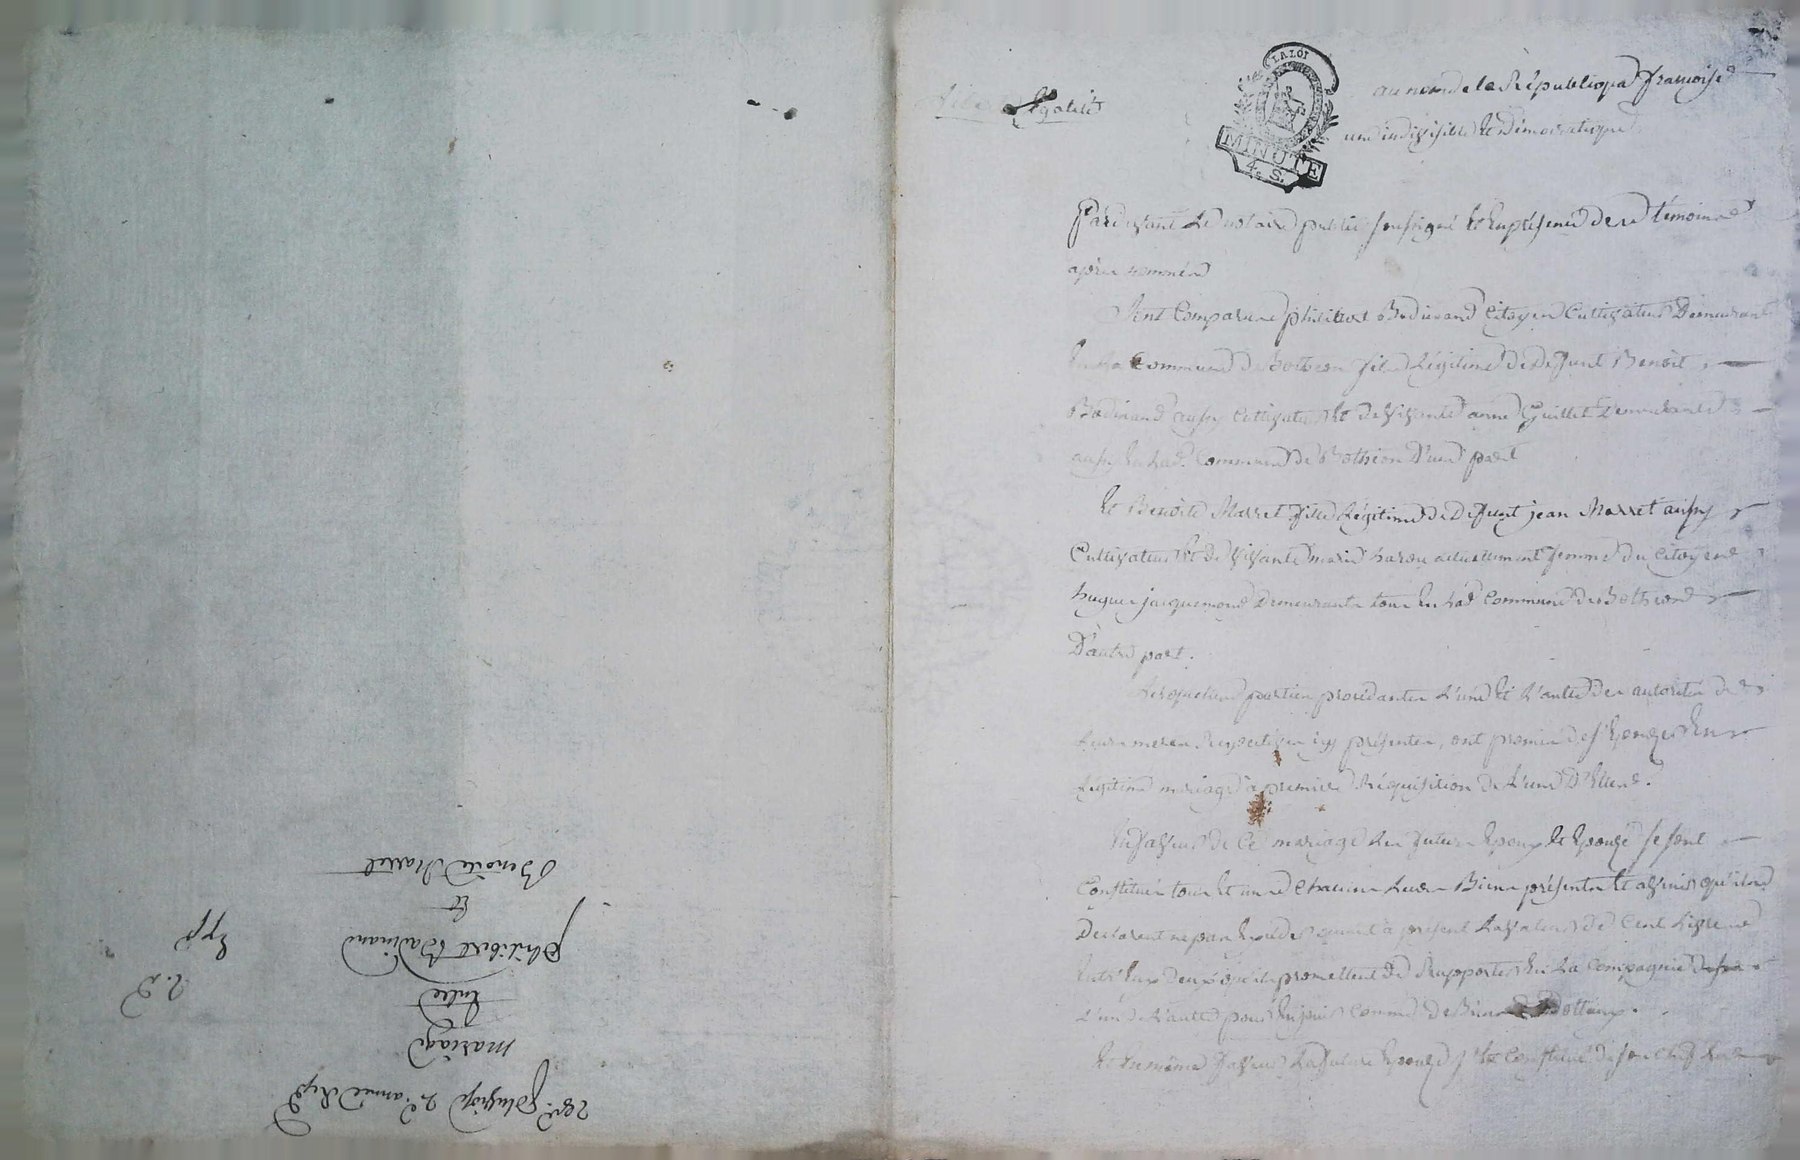 Benoite Marret
Et
philibert Badinand
Entre
mariage
28e pluviose 2e année Rep
Exp
LA LOI
MINUTE
4. S.
Egalité
au nom de la République françoise
une indivisible et Démocratique
Pardevant Le notaire public soussigné et En présence de ses témoins
après nommés
Sont Comparus philibert Badinand Citoyen Cultivateur Demeurant
En la Commune de Bothion fils Légitime de Deffunt Benoit
Badinand aussy Cultivateur et de vivante anne Guillet Demeurante
aussy En lad. Commune de Bothion D'une part
Et Benoite Marret fille Légitime de Deffunt jean Marret aussy
Cultivateur et de vivante marie actuellement femme du Citoyen
hugue jacquemond Demeurants tous En lad Commune de Bothion
D'autre part.
Lesquelles parties procédantes L'une et L'autre des autorités de
Leurs meres Respectives icy présentes, ont promis de s'Epouzer En
Légitime mariage à premiere Réquisition de L'une D'Elles.
En faveur de Ce mariage Les futurs Epoux et Epouze se sont
Constitués tous et uns Chacuns Leurs Biens présents et avenir qu'ils
Declarent ne pas Exceder quant à présent La valeur de Cent Livres
Entr'Eux deux qu'ils promettent de Rapporter En La Compagnie
L'un de L'autre pour En jouir Comme de Biens Dottaux.
Et En même faveur La future Epouze s'est Constitué de son Chef